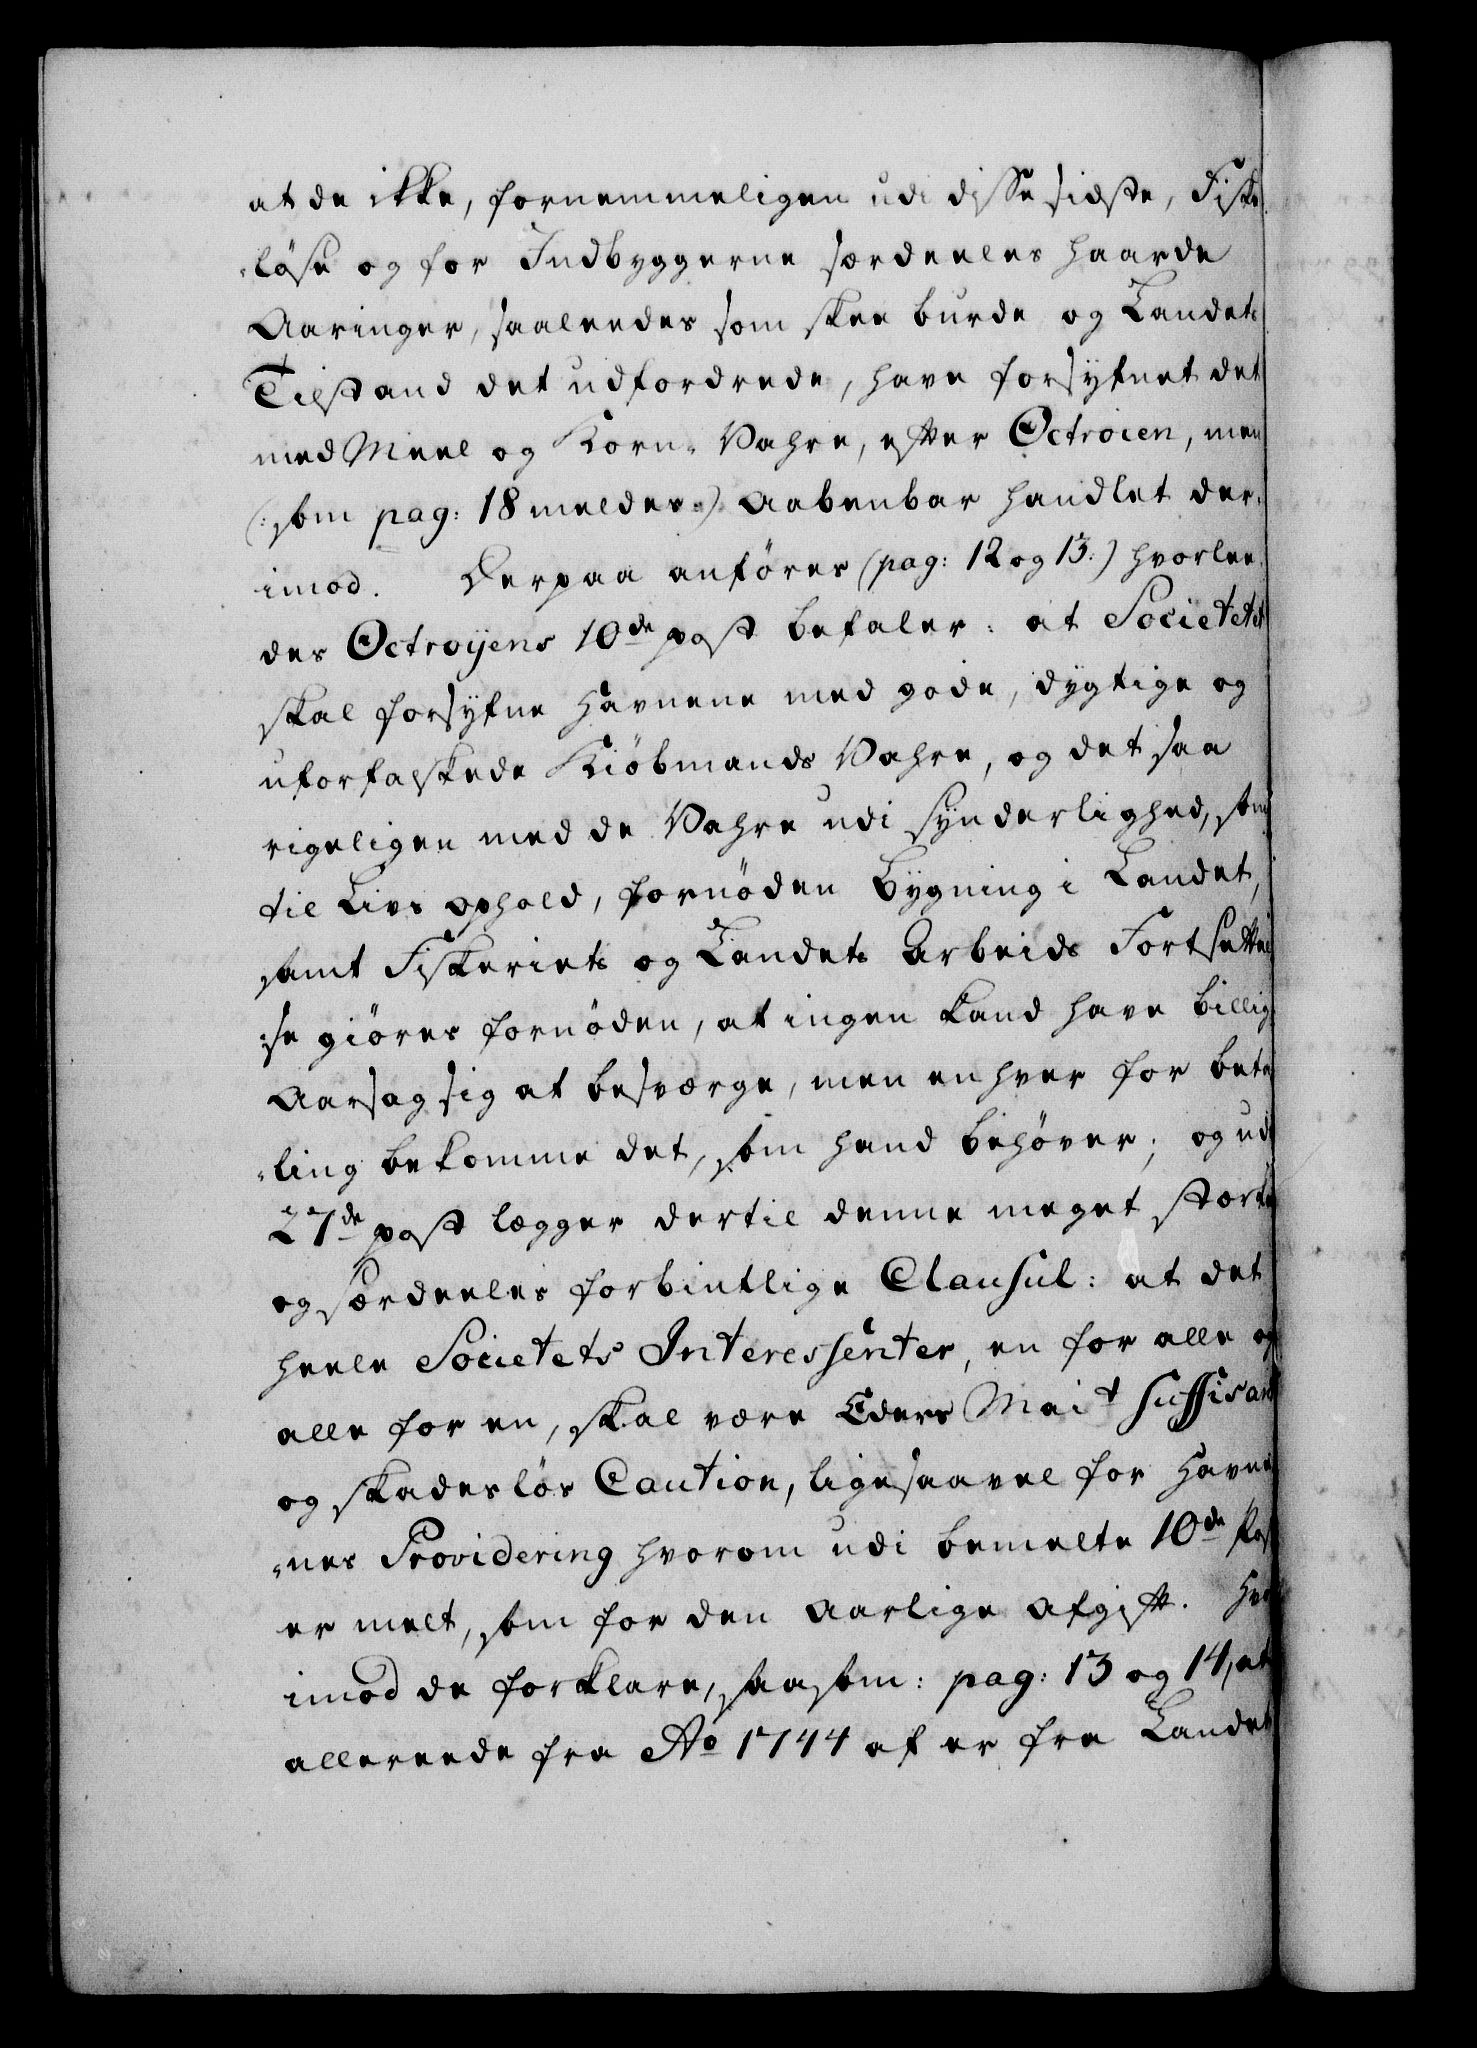 at de ikke, fornemmeligen udi disse sidste, Fiske
„löse og for Indbyggerne særdeeles haarde
Aaringer, saaleedes som skee burde og Landets
Tilstand det udfordrede, have forsÿfnet det
med Meel og Korn-Vahre, efter Octroien, men
(: som pag: 18 meldes :) Aabenbar handlet der„
imod. Derpaa anföres (pag: 12 og 13:) hvorlee„
des Octroÿens 10de post befaler: at Societetet
skal forsÿfne Havnene med gode, dygtige og
uforfalskede Kiöbmands Vahre, og det saa
rigeligen med de Vahre udi sÿnderlighed, som
til Livs ophold, fornöden Bÿgning i Landet,
samt Fiskeriets og Landets Arbeids Fortsettel
„se giöres fornöden, at ingen kand have billig
Aarsag sig at besværge, men en hver for beta
„ling bekomme det, som hand behöver; og udi
27de post lægger dertil denne meget stærke
og særdeeles forbintlige Clausul: at det
heele Societets Interessenter, en for alle og
alle for en, skal være Eders Mait suffisant
og skadeslös Caution, ligesaavel for Havne
„nes Providering hvorom udi bemelte 10de Post
er melt, som for den Aarlige Afgift. Hvor
imod de forklare, saasom: pag: 13 og 14, at
allereede fra Ao 1744 af er fra Landet